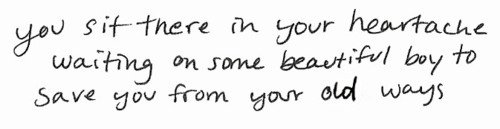 you sit there in your heartache
waiting on some beautiful boy to
save you from your old ways